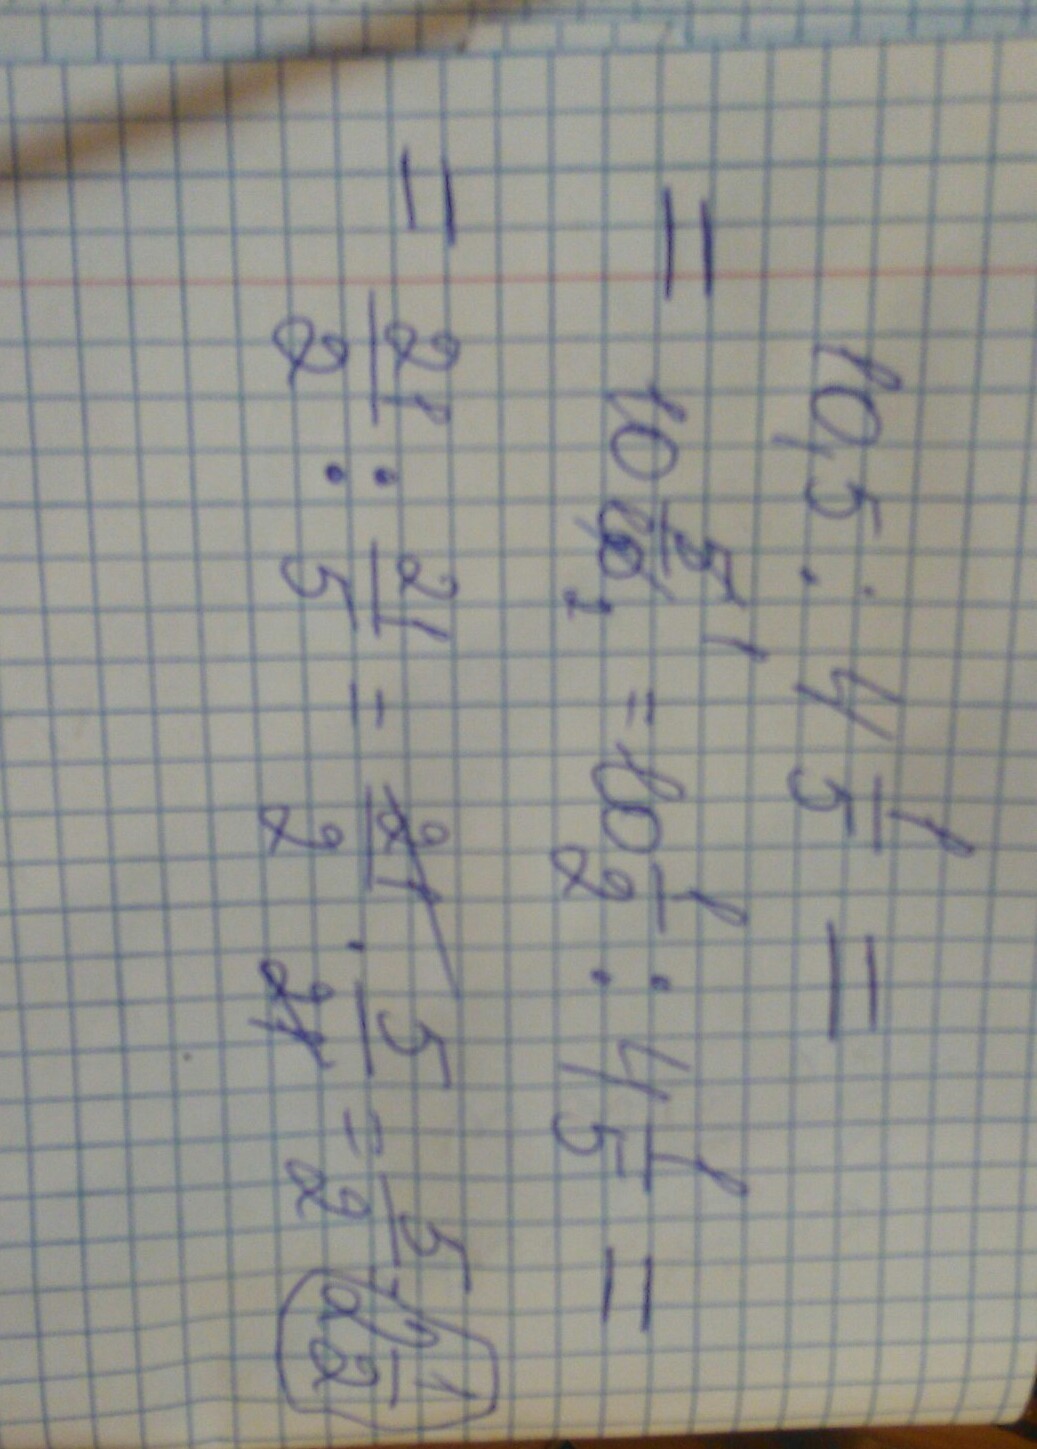 10,5 : 4 1/5 =
= 10 5/10 1 2 = 10 1/2 : 4 1/5 =
= 21/2 : 21/5 = 21/2 · 5/21 = 5/2 = 2 1/2